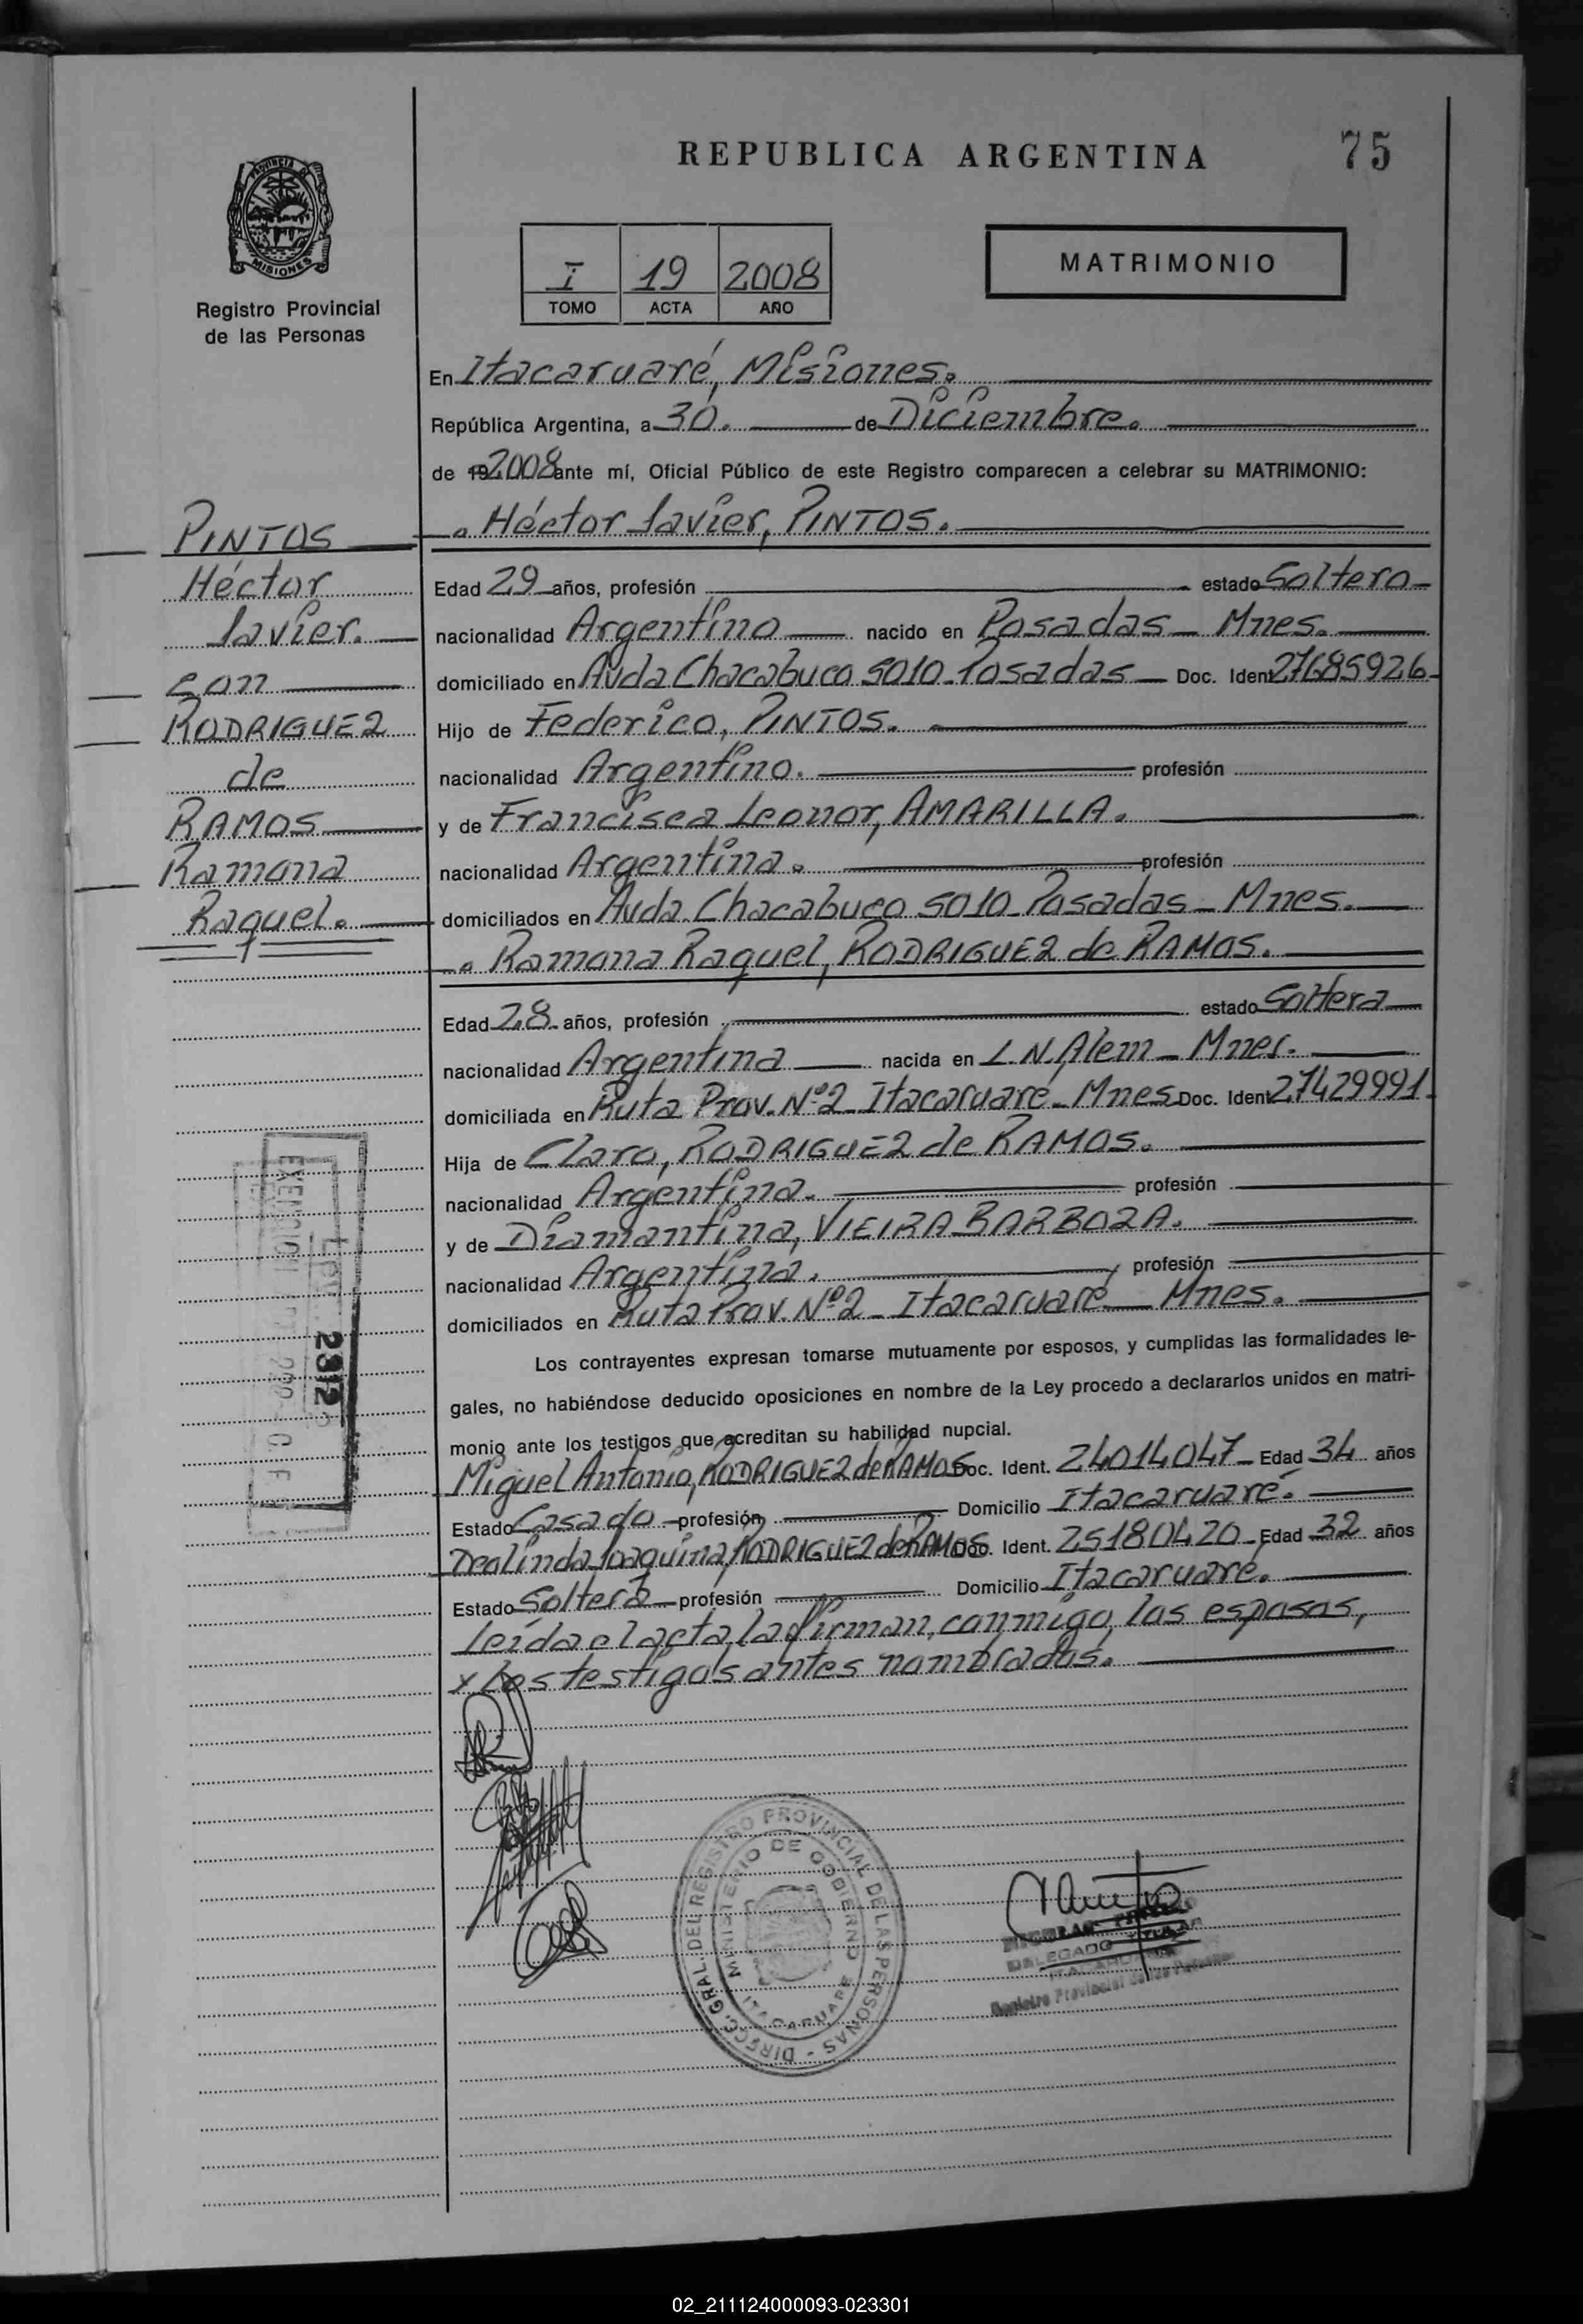 REPUBLICA ARGENTINA
75
PROVINCIA DE
MISIONES
Registro Provincial
de las Personas
I 19 2008
TOMO ACTA AÑO
MATRIMONIO
En Itacaruaré, Misiones.
República Argentina, a 30. de Diciembre.
de 192008 ante mí, Oficial Público de este Registro comparecen a celebrar su MATRIMONIO:
PINTOS
Héctor
Javier.
con
RODRIGUEZ
de
RAMOS
Ramona
Raquel.
Héctor Javier, PINTOS.
Edad 29 años, profesión estado Soltero
nacionalidad Argentino nacido en Posadas - Mnes.
domiciliado en Avda Chacabuco 5010 - Posadas Doc. Ident 27685926
Hijo de Federico, PINTOS.
nacionalidad Argentino. profesión
y de Francisca Leonor, AMARILLA.
nacionalidad Argentina. profesión
domiciliados en Avda. Chacabuco 5010 - Posadas - Mnes.
Ramona Raquel, RODRIGUEZ de RAMOS.
Edad 28 años, profesión estado Soltera
nacionalidad Argentina nacida en L.N. Alem - Mnes.
domiciliada en Ruta Prov. Nº2 - Itacaruaré - Mnes Doc. Ident 27429991
Hija de Claro, RODRIGUEZ de RAMOS.
nacionalidad Argentina. profesión
y de Diamantina, VIEIRA BARBOZA.
nacionalidad Argentina. profesión
domiciliados en Ruta Prov. Nº2 - Itacaruaré - Mnes.
Los contrayentes expresan tomarse mutuamente por esposos, y cumplidas las formalidades le-
gales, no habiéndose deducido oposiciones en nombre de la Ley procedo a declararlos unidos en matri-
monio ante los testigos que acreditan su habilidad nupcial.
Miguel Antonio, RODRIGUEZ de RAMOS Doc. Ident. 24014047 Edad 34 años
Estado Casado profesión Domicilio Itacaruaré.
Deolinda Joaquina, RODRIGUEZ de RAMOS Doc. Ident. 25180420 Edad 32 años
Estado Soltera profesión Domicilio Itacaruaré.
leída el acta, la firman, conmigo, los esposos,
y los testigos antes nombrados.
EXENCION
2312
DIRECC. GRAL. DEL REGISTRO PROVINCIAL DE LAS PERSONAS
MINISTERIO DE GOBIERNO
ITACARUARE
DELEGADO
Registro Provincial de las Personas
02_211124000093-023301